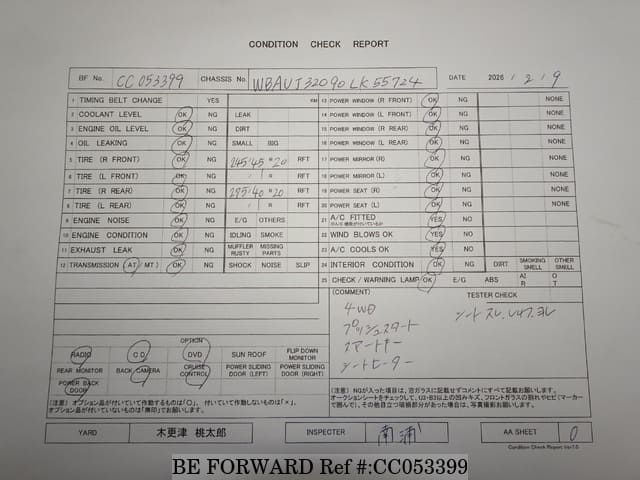 CONDITION CHECK REPORT
BF No. CC 053399 CHASSIS No. WBAVJ32090LK55724 DATE 2026 / 2 / 9
1 TIMING BELT CHANGE YES KM
2 COOLANT LEVEL OK NG LEAK
3 ENGINE OIL LEVEL OK NG DIRT
4 OIL LEAKING OK NG SMALL BIG
5 TIRE (R FRONT) OK NG 245/45 R 20 RFT
6 TIRE (L FRONT) OK NG / R RFT
7 TIRE (R REAR) OK NG 295/40 R 20 RFT
8 TIRE (L REAR) OK NG / R RFT
9 ENGINE NOISE OK NG E/G OTHERS
10 ENGINE CONDITION OK NG IDLING SMOKE
11 EXHAUST LEAK OK NG MUFFLER RUSTY MISSING PARTS
12 TRANSMISSION (AT/MT) OK NG SHOCK NOISE SLIP
13 POWER WINDOW (R FRONT) OK NG NONE
14 POWER WINDOW (L FRONT) OK NG NONE
15 POWER WINDOW (R REAR) OK NG NONE
16 POWER WINDOW (L REAR) OK NG NONE
17 POWER MIRROR (R) OK NG NONE
18 POWER MIRROR (L) OK NG NONE
19 POWER SEAT (R) OK NG NONE
20 POWER SEAT (L) OK NG NONE
21 A/C FITTED YES NO
22 WIND BLOWS OK YES NO
23 A/C COOLS OK YES NO
24 INTERIOR CONDITION OK NG DIRT SMOKING SMELL OTHER SMELL
25 CHECK / WARNING LAMP OK E/G ABS AIR OT
(COMMENT) TESTER CHECK
4WD
プッシュスタート
スマートキー
シートヒーター
シートスレ、
OPTION
RADIO CD DVD SUN ROOF FLIP DOWN MONITOR
REAR MONITOR BACK CAMERA CRUISE CONTROL POWER SLIDING DOOR (LEFT) POWER SLIDING DOOR (RIGHT)
POWER BACK DOOR
（注意）オプション品が付いていて作動するものは「○」、付いていて作動しないものは「×」、
オプション品が付いていないものは「無印」でお願いします。
（注意）NGが入った項目は、芯ガラスに記載せずコメントにすべて記載お願いします。
YARD 木更津 桃太郎 INSPECTER 南浦 AA SHEET 0
Condition Check Report Ver7.0
BE FORWARD Ref #:CC053399